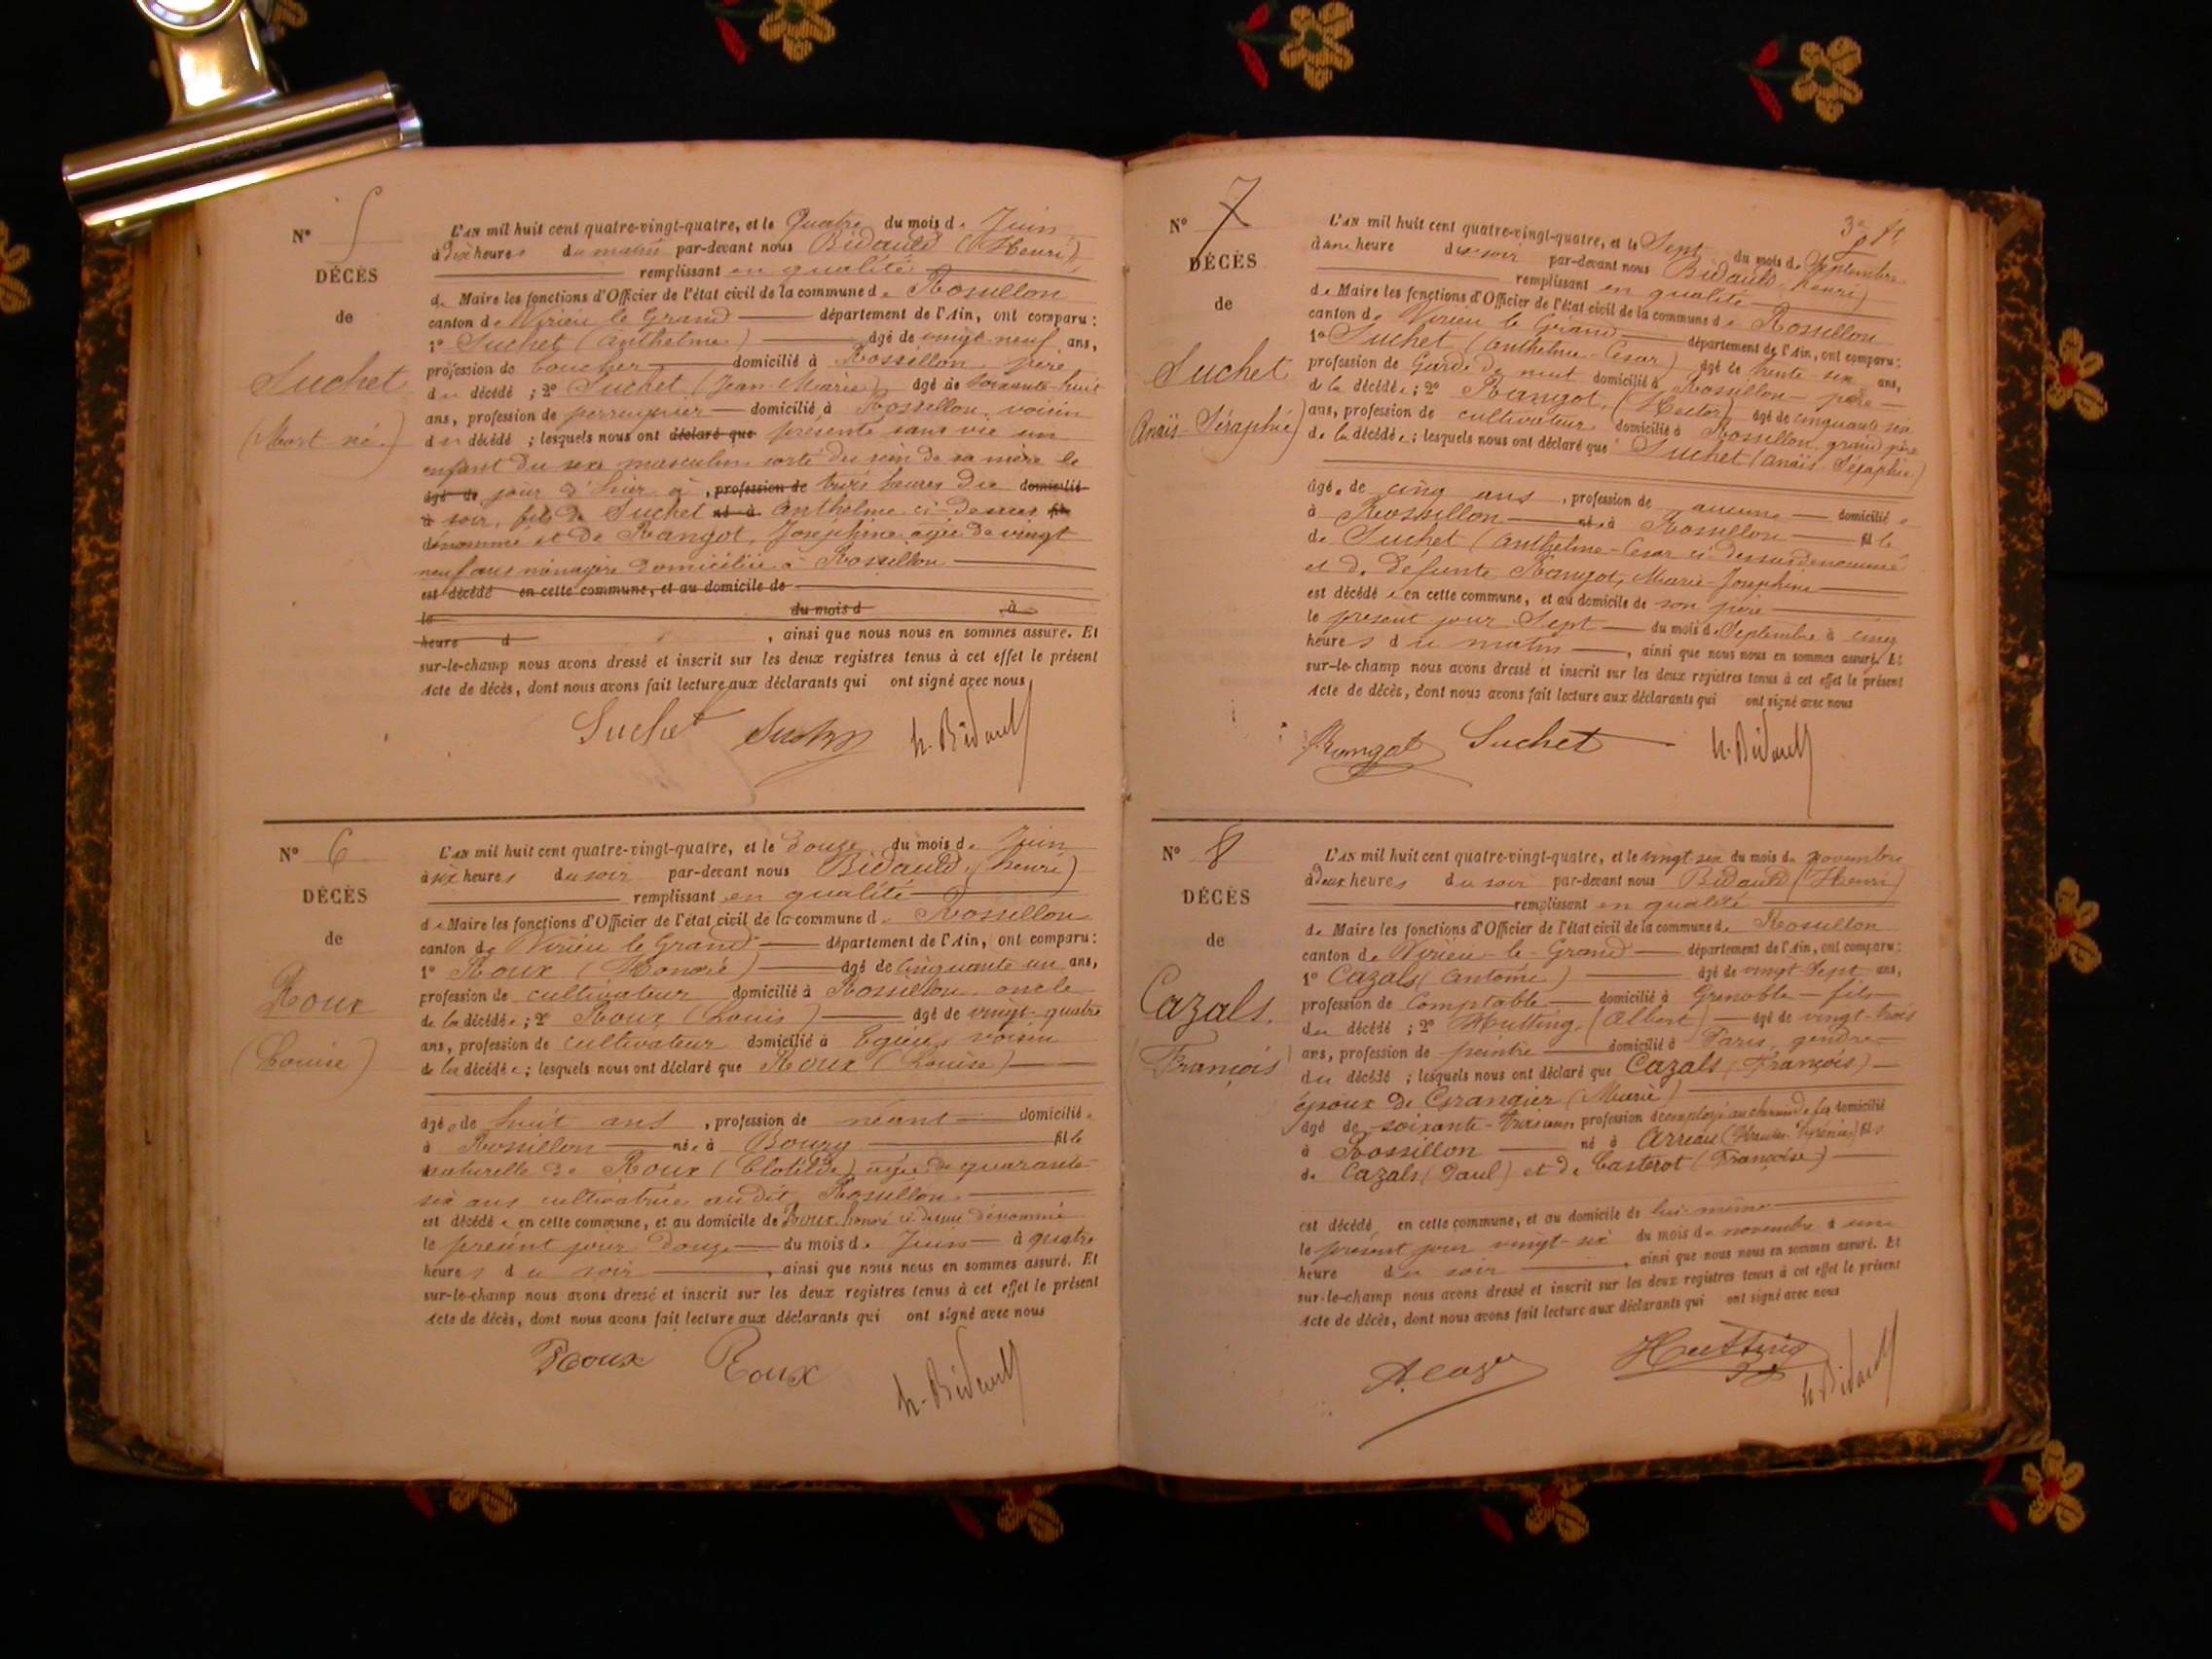 N° 5
DÉCÈS
de
Suchet
(Mort-né)
L'AN mil huit cent quatre-vingt-quatre, et le Quatre du mois de Juin
à dix heures du matin par-devant nous Bidauld (Henri)
remplissant en qualité
de Maire les fonctions d'Officier de l'état civil de la commune de Rossillon
canton de Virieu le Grand département de l'Ain, ont comparu :
1° Suchet (Anthelme) âgé de vingt-neuf ans,
profession de boucher domicilié à Rossillon, père
du décédé ; 2° Suchet (Jean-Marie) âgé de soixante-huit
ans, profession de perruquier domicilié à Rossillon, voisin
du décédé ; lesquels nous ont déclaré que présenté sans vie un
enfant du sexe masculin sorti du sein de sa mère le
âgé de jour d'hier à , profession de trois heures du domicilié
à soir, fils de Suchet né à Anthelme ci-dessus fils
dénommé et de Rangot, Joséphine âgée de vingt
neuf ans ménagère domiciliée à Rossillon
est décédé en cette commune, et au domicile de
le du mois d à
heure d , ainsi que nous nous en sommes assuré. Et
sur-le-champ nous avons dressé et inscrit sur les deux registres tenus à cet effet le présent
Acte de décès, dont nous avons fait lecture aux déclarants qui ont signé avec nous
Suchet H. Bidauld
N° 6
DÉCÈS
de
Roux
(Louise)
L'AN mil huit cent quatre-vingt-quatre, et le douze du mois de Juin
à six heures du soir par-devant nous Bidauld, (henri)
remplissant en qualité
de Maire les fonctions d'Officier de l'état civil de la commune de Rossillon
canton de Virieu le Grand département de l'Ain, ont comparu :
1° Roux (Honoré) âgé de Cinquante un ans,
profession de cultivateur domicilié à Rossillon oncle
de la décédée ; 2° Roux (Louis) âgé de vingt-quatre
ans, profession de cultivateur domicilié à Egieu, voisin
de la décédée ; lesquels nous ont déclaré que Roux (Louise)
âgée de huit ans , profession de néant domiciliée
à Rossillon née à Bourg fille
naturelle de Roux (Clotilde) âgée de quarante
six ans cultivatrice audit Rossillon
est décédée en cette commune, et au domicile de Roux honoré ci-dessus dénommé
le présent jour douze du mois de Juin à quatre
heures du soir , ainsi que nous nous en sommes assuré. Et
sur-le-champ nous avons dressé et inscrit sur les deux registres tenus à cet effet le présent
Acte de décès, dont nous avons fait lecture aux déclarants qui ont signé avec nous
Roux Roux H. Bidauld
N° 7
DÉCÈS
de
Suchet
(Anaïs-Séraphie)
L'AN mil huit cent quatre-vingt-quatre, et le Sept du mois de Septembre
à une heure du soir par-devant nous Bidauld, henri)
remplissant en qualité
de Maire les fonctions d'Officier de l'état civil de la commune de Rossillon
canton de Virieu le Grand département de l'Ain, ont comparu :
1° Suchet (Anthelme-Cesar) âgé de trente-six ans,
profession de Garde de nuit domicilié à Rossillon père
de la décédée ; 2° Rangot, (Hector) âgé de cinquante six
ans, profession de cultivateur domicilié à Rossillon grand père
de la décédée ; lesquels nous ont déclaré que Suchet (Anaïs Séraphie)
âgée de cinq ans , profession de aucune domiciliée
à Rossillon née à Rossillon fille
de Suchet (Anthelme-Cesar ci-dessus dénommé
et de défunte Rangot, Marie-Josephine
est décédée en cette commune, et au domicile de son père
le présent jour Sept du mois de Septembre à cinq
heures du matin , ainsi que nous nous en sommes assuré. Et
sur-le-champ nous avons dressé et inscrit sur les deux registres tenus à cet effet le présent
Acte de décès, dont nous avons fait lecture aux déclarants qui ont signé avec nous
Rangot Suchet H. Bidauld
N° 8
DÉCÈS
de
Cazals
(François)
L'AN mil huit cent quatre-vingt-quatre, et le vingt-six du mois de novembre
à deux heures du soir par-devant nous Bidauld (Henri)
remplissant en qualité
de Maire les fonctions d'Officier de l'état civil de la commune de Rossillon
canton de Virieu-le-Grand département de l'Ain, ont comparu :
1° Cazals (Antoine) âgé de vingt-sept ans,
profession de Comptable domicilié à Grenoble fils
du décédé ; 2° Hutting, (Albert) âgé de vingt-trois
ans, profession de peintre domicilié à Paris, gendre
du décédé ; lesquels nous ont déclaré que Cazals (François)
époux de Grangier (Marie)
âgé de soixante-trois ans, profession d'employé au chemin de fer domicilié
à Rossillon né à Arreau (Hautes Pyrénées) fils
de Cazals (Paul) et de Casterot (Françoise)
est décédé en cette commune, et au domicile de lui-même
le présent jour vingt-six du mois de novembre à une
heure du soir , ainsi que nous nous en sommes assuré. Et
sur-le-champ nous avons dressé et inscrit sur les deux registres tenus à cet effet le présent
Acte de décès, dont nous avons fait lecture aux déclarants qui ont signé avec nous
Hutting H. Bidauld